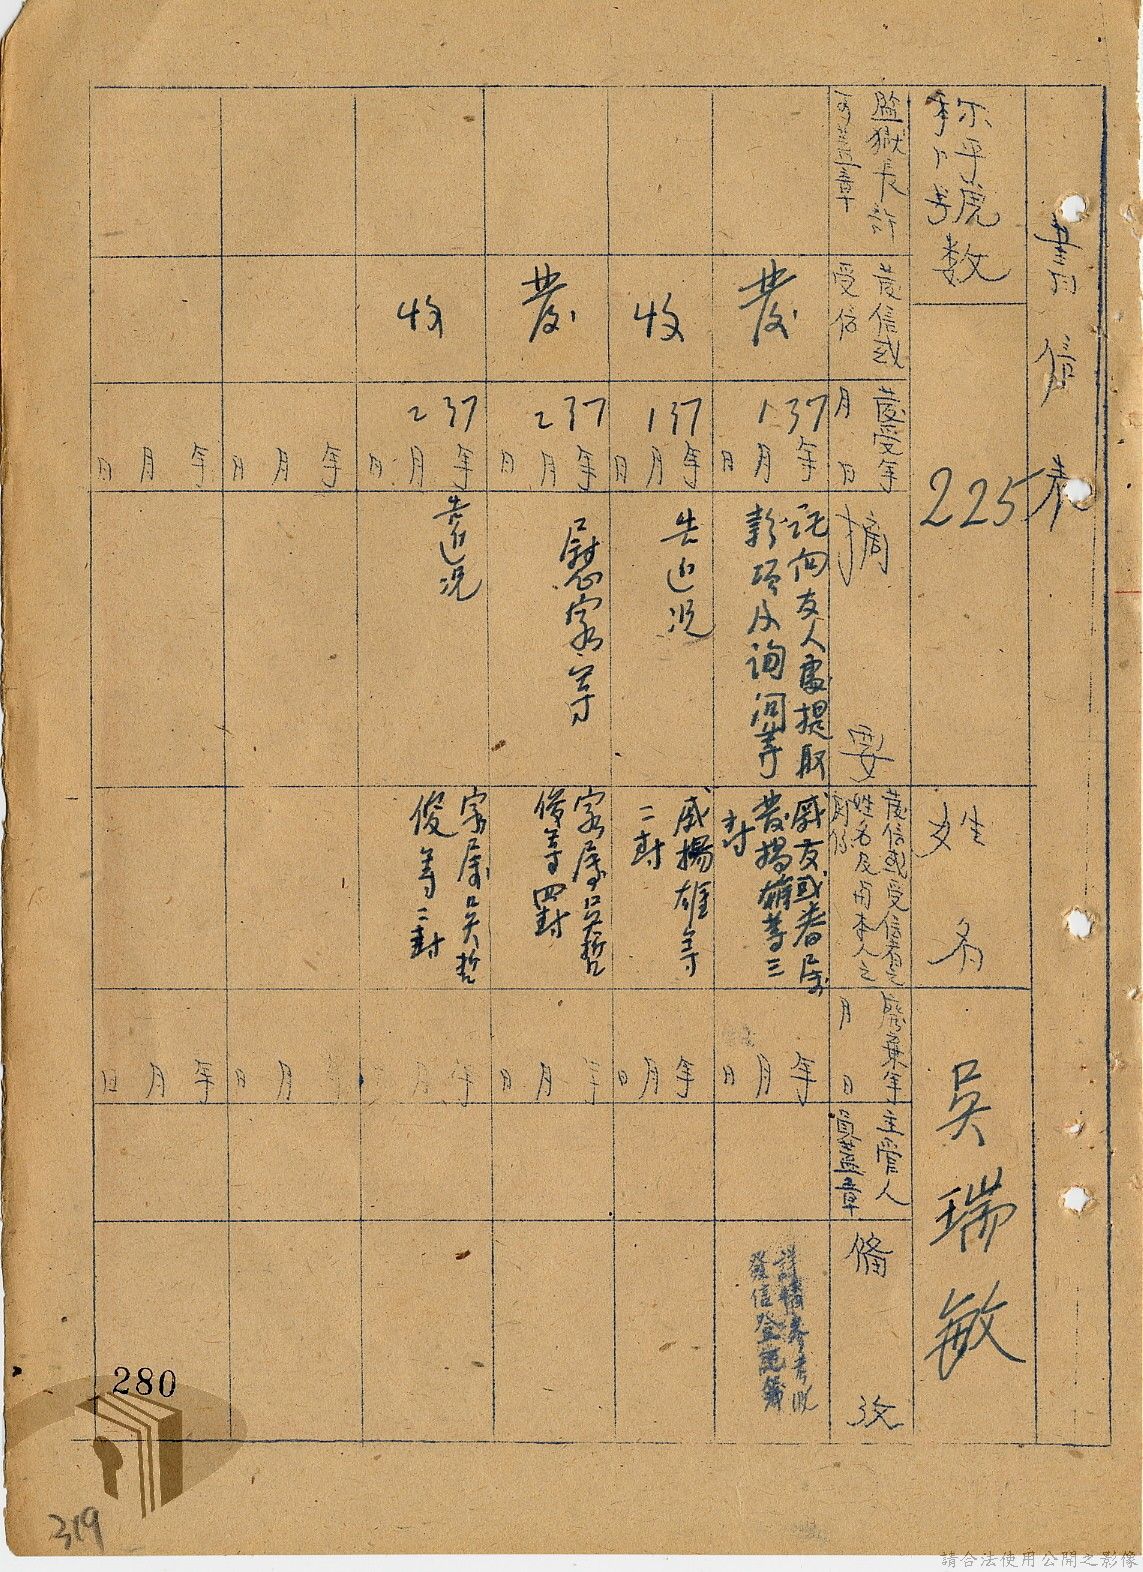 書信表
称呼號数
225
姓名
吳瑞敏
監獄長許
可蓋章
發信或
受信
發受年
月日
摘要
發信或受信者之
姓名及與本人之
廢棄年
月日
主管人
員蓋章
備攷
發
37年1月日
託向友人處提取
款項及詢問等
戚友或眷属
發楊雄等三
封
年月日
詳情参考收
發信登記簿
收
37年1月日
告近况
戚楊雄等
二封
年月日
發
37年2月日
慰家等
家属吳哲
俊等四封
年月日
收
37年2月日
告近况
家属吳哲
俊等二封
年月日
年月日
年月日
年月日
年月日
280
319
請合法使用公開之影像